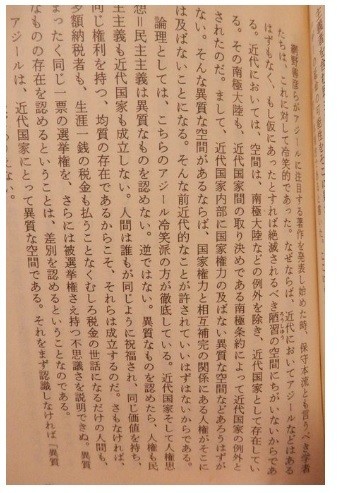 網野善彦らがアジールに注目する著作を発表し始めた時、保守本流とも言うべき学者
たちは、これに対して冷笑的であった。なぜならば、近代においてアジールなどはある
はずもなく、もし仮にあったとすれば絶滅されるべき陋習の空間にちがいないからであ
る。近代においては、空間は、南極大陸などの例外を除き、近代国家として存在してい
る。その南極大陸も、近代国家間の取り決めである南極条約によって近代国家の例外と
されたのだ。まして、近代国家内部に国家権力の及ばない異質な空間などあろうはずが
ない。そんな異質な空間があるならば、国家権力と相互補完の関係にある人権がそこに
は及ばないことになる。そんな前近代的なことが許されていいはずはないからである。
論理としては、こちらのアジール冷笑派の方が徹底している。近代国家そして人権思
想＝民主主義は異質なものを認めない。逆ではない。異質なものを認めたら、人権も民
主主義も近代国家も成立しない。人間は誰もが同じように祝福され、同じ価値を持ち、
同じ権利を持つ、均質の存在であるからこそ、それらは成立するのだ。さもなければ、
多額納税者も、生涯一銭の税金も払うことなくむしろ税金の世話になるだけの人間も、
まったく同じ一票の選挙権を、さらには被選挙権さえ持つ不思議さを説明できぬ。異質
なものの存在を認めるということは、差別を認めるということなのである。
アジールは、近代国家にとって異質な空間である。それをまず認識しなければ「異質